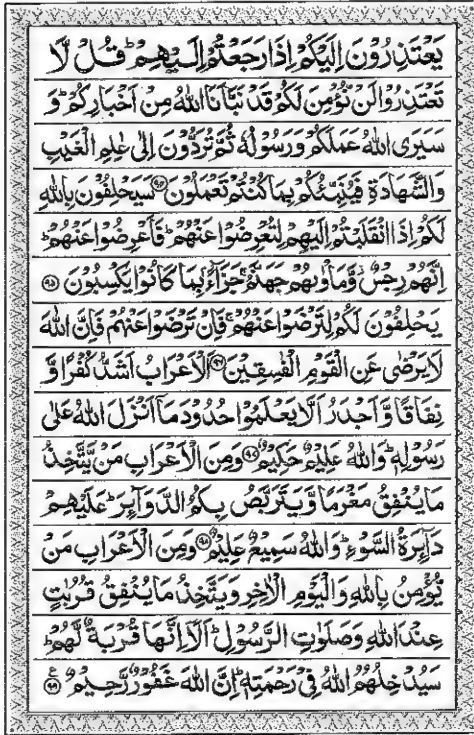 يَعْتَذِرُوْنَ اِلَيْكُمْ اِذَا رَجَعْتُمْ اِلَيْهِمْ ؕ قُلْ لَّا
تَعْتَذِرُوْا لَنْ نُّؤْمِنَ لَكُمْ قَدْ نَبَّاَنَا اللّٰهُ مِنْ اَخْبَارِكُمْ ؕ وَ
سَيَرَى اللّٰهُ عَمَلَكُمْ وَرَسُوْلُهٗ ثُمَّ تُرَدُّوْنَ اِلٰى عٰلِمِ الْغَيْبِ
وَالشَّهَادَةِ فَيُنَبِّئُكُمْ بِمَا كُنْتُمْ تَعْمَلُوْنَ ﴿۹۴﴾ سَيَحْلِفُوْنَ بِاللّٰهِ
لَكُمْ اِذَا انْقَلَبْتُمْ اِلَيْهِمْ لِتُعْرِضُوْا عَنْهُمْ ؕ فَاَعْرِضُوْا عَنْهُمْ ؕ
اِنَّهُمْ رِجْسٌ وَّمَاْوٰىهُمْ جَهَنَّمُ ۚ جَزَآءًۢ بِمَا كَانُوْا يَكْسِبُوْنَ ﴿۹۵﴾
يَحْلِفُوْنَ لَكُمْ لِتَرْضَوْا عَنْهُمْ ۚ فَاِنْ تَرْضَوْا عَنْهُمْ فَاِنَّ اللّٰهَ
لَا يَرْضٰى عَنِ الْقَوْمِ الْفٰسِقِيْنَ ﴿۹۶﴾ اَلْاَعْرَابُ اَشَدُّ كُفْرًا وَّ
نِفَاقًا وَّاَجْدَرُ اَلَّا يَعْلَمُوْا حُدُوْدَ مَاۤ اَنْزَلَ اللّٰهُ عَلٰى
رَسُوْلِهٖ ؕ وَاللّٰهُ عَلِيْمٌ حَكِيْمٌ ﴿۹۷﴾ وَمِنَ الْاَعْرَابِ مَنْ يَّتَّخِذُ
مَا يُنْفِقُ مَغْرَمًا وَّيَتَرَبَّصُ بِكُمُ الدَّوَآئِرَ ؕ عَلَيْهِمْ
دَآئِرَةُ السَّوْءِ ؕ وَاللّٰهُ سَمِيْعٌ عَلِيْمٌ ﴿۹۸﴾ وَمِنَ الْاَعْرَابِ مَنْ
يُّؤْمِنُ بِاللّٰهِ وَالْيَوْمِ الْاٰخِرِ وَيَتَّخِذُ مَا يُنْفِقُ قُرُبٰتٍ
عِنْدَ اللّٰهِ وَصَلَوٰتِ الرَّسُوْلِ ؕ اَلَاۤ اِنَّهَا قُرْبَةٌ لَّهُمْ ؕ
سَيُدْخِلُهُمُ اللّٰهُ فِيْ رَحْمَتِهٖ ؕ اِنَّ اللّٰهَ غَفُوْرٌ رَّحِيْمٌ ﴿۹۹﴾ ع